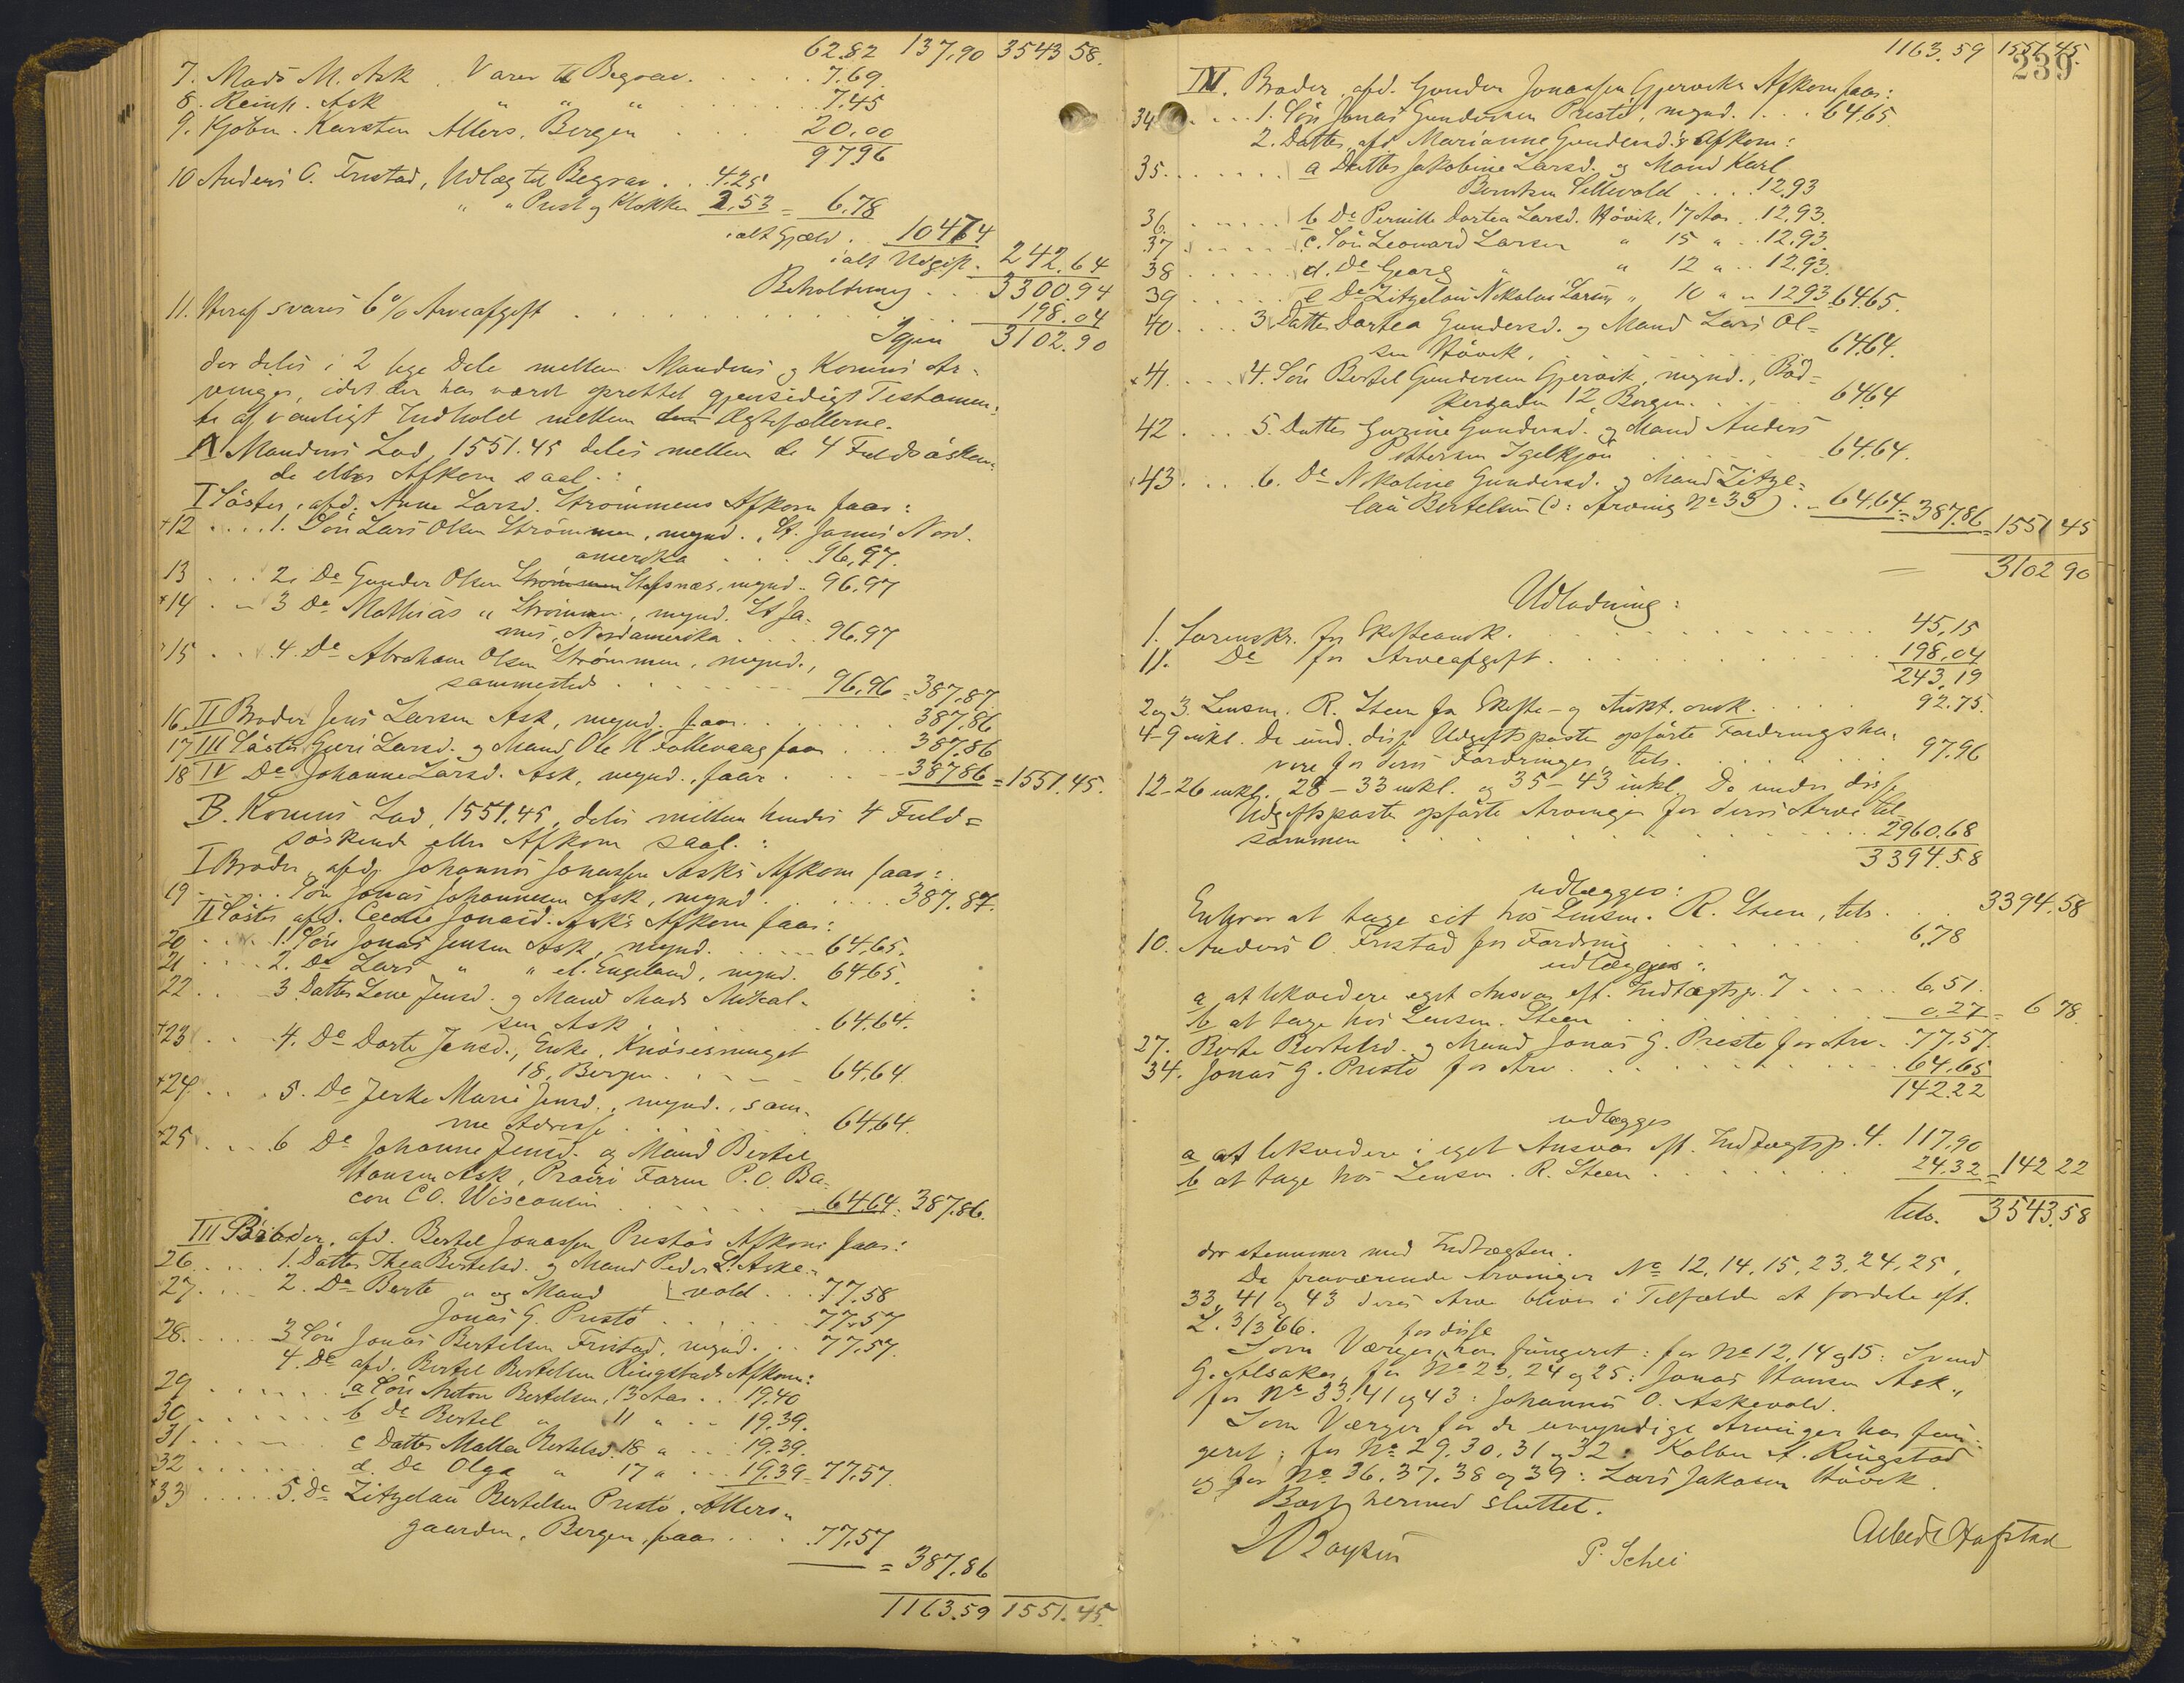 62.82 137.90 3543 58.
7. Mads M. Ask . Varer til Begrav. . . . . 7.69.
8. Reinh. Ask " " " . . . . . . 7.45
9. Kjøbm. Karsten Allers, Bergen . . . 20.00
97 96
10 Anders O. Frustad, Udlæg til Begrav . . 4.25
" " Prest og Klokker 2,53 = 6.78
ialt Gjæld . 104 74
ialt Udgift . 242.64
Beholdning . . . 3300.94
11. Heraf svares 6% Arveafgift . . . . . . . . . . 198.04
Igjen 3102.90
der deles i 2 lige Dele mellem Mandens og Konens Ar-
vinger, idet der har været oprettet gjensidigt Testamen-
te af vanligt Indhold mellem Ægtefællerne.
A Mandens Lod, 1551.45 deles mellem de 4 Fuldsösken-
de eller Afkom saal. :
I Söster, afd. Anne Larsd. Strömmens Afkom faar :
+12 . . . . 1. Sön Lars Olsen Strömmen, mynd. , St. James Nord-
amerika . . . . 96,97.
13 . . . 2. Do Gunder Olsen Strömmen Stefsnæs, mynd. . 96.97
+14 . . . 3 Do Mathias " Strömmen, mynd. St Ja-
mes, Nordamerika . . . . 96,97
+15 . . . 4. Do Abraham Olsen Strömmen, mynd.,
sammesteds . . . . . . . 96,96 = 387.87
16. II Broder Jens Larsen Ask, mynd. faar . . . . . . . 387,86
17 III Söster Guri Larsd. og Mand Ole H. Follevaag faar . . . 387.86
18 IV Do Johanne Larsd. Ask, mynd., faar . . . . . 387.86 = 1551.45.
B. Konens Lod, 1551.45, deles mellem hendes 4 Fuld=
söskende eller Afkom saal. :
I Broder, afd. Johannes Jonassen Asks Afkom faar :
19 . . . . . Sön Jonas Johannesen Ask, mynd . . . . . . . 387.87.
II Söster afd. Cecilie Jonasd. Asks Afkom faar :
20 . . . . 1. Sön Jonas Jensen Ask, mynd. . . . . . 64.65.
21 . . . . 2. Do Lars " " el. Engeland, mynd. 64.65.
22 . . . 3 Datter Lene Jensd. og Mand Mads Mikal-
sen Ask . . . . . . . 64.64.
+23 . . . 4. Do Dorte Jensd., Enke, Knösesmuget
18, Bergen . . . . . . 64.64.
+24 . . . 5. Do Jerke Marie Jensd., mynd., sam-
me Adresse . . . . . . 64.64.
+25 . . . 6 Do Johanne Jensd. og Mand Bertel
Hansen Ask, Prairi Farm P.O. Ba-
con CO. Wisconsin . . . . . . . 64.64. = 387,86.
III Broder, afd. Bertel Jonassen Prestös Afkom faar :
26 . . . . 1. Datter Thea Bertelsd. og Mand Peder L. Aske-
27 . . . 2. Do Berte " og Mand [vold . . . 77.58
Jonas G. Prestö . . . . . 77.57
28 . . . . 3 Sön Jonas Bertelsen Frustad, mynd. . . 77.57.
4. Do afd. Bertel Bertelsen Ringstads Afkom :
29 . . . . . . a Sön Anton Bertelsen, 13 Aar . . 19,40
30 . . . . . . b Do Bertel " 11 " . . 19.39.
31 . . . . . . c Datter Malla Bertelsd. 18 " . . . 19.39.
32 . . . . . . d. Do Olga " 17 " . . . 19.39 = 77.57.
+33 . . . . . 5. Do Zitzelau Bertelsen Prestö, Allers-
gaarden, Bergen, faar . . . . 77,57
= 387.86
1163.59 1551.45.
1163.59 1551.45.
239
IV. Broder, afd. Gunder Jonassen Gjerviks Afkom faar :
34 . . . . 1. Sön Jonas Gundersen Prestö, mynd. . . . 64.65.
2. Datter, afd. Marianne Gundersd.s Afkom :
35. . . . . . . a Datter Jakobine Larsd. og Mand Karl
Berntsen Sellevold . . . . 12,93
36. . . . . . . b Do Pernille Dortea Larsd. Hövik, 17 Aar . . 12.93.
37 . . . . . . c. Sön Leonard Larsen " 15 " . . 12,93.
38 . . . . . . d. Do Georg " " 12 " . . 12.93.
39 . . . . . . e Do Zitzelau Nikolai Larsen " 10 " " 12 93 = 64.65.
40 . . . . 3 Datter Dortea Gundersd. og Mand Lars Ol=
sen Hövik . . . . . . . . . . 64.64.
+41 . . . . 4. Sön Bertel Gundersen Gjervik, mynd., Bød=
kergaden 12, Bergen. . . . . . 64.64
42 . . . 5. Datter Gurine Gundersd. og Mand Anders
Pettersen Igelkjön . . . . . . . 64.64.
+43 . . . . 6. Do Nikoline Gundersd. og Mand Zitze=
lau Bertelsen (o: Arving No 33) . . 64.64. = 387.86 = 1551 45
3102 90
Udlodning :
1. Sorenskr. for Skifteomk. . . . . . . . . . . . 45,15
11. Do for Arveafgift . . . . . . . . . . . . 198.04
243,19
2 og 3. Lensm. R. Steen for Skifte- og Aukt. omk. . . . . . 92.75.
4-9 inkl. De und. disse Udgiftsposter opførte Fordringsha-
vere for deres Fordringer, tils. . . . . . . . . . 97.96
12-26 inkl. 28-33 inkl. og 35-43 inkl. De under disse
Udgiftsposter opførte Arvinger for deres Arve til-
sammen . . . . . . . . . . . . . 2960.68
3394.58
udlægges :
Enhver at tage sit hos Lensm. R. Steen, tils . . . 3394.58
10. Anders O. Frustad for Fordring . . . . . . . . 6,78
udlægges :
a at likvidere eget Ansvar eft. Indtægtsp. 7 . . . . . 6,51.
b at tage hos Lensm. Steen . . . . . . . . . . 0.27 = 6 78.
27. Berte Bertelsd. og Mand Jonas G. Prestö for Arv . . 77.57.
34. Jonas G. Prestö for Arv . . . . . . . . . . . 64.65
142.22
udlægges
a at likvidere i eget Ansvar eft. Indtægtsp. 4. 117,90
b at tage hos Lensm. R. Steen . . . . . . . . 24.32 = 142 22
tils. 3543.58
der stemmer med Indtægten.
De fraværende Arvinger No 12, 14, 15, 23, 24, 25,
33, 41 og 43 deres Arv bliver i Tilfælde at fordele eft.
L. 3/3 66.
for disse
Som Værger har fungeret : for No 12, 14 og 15 : Svend
G. Alsaker, for No 23, 24 og 25 : Jonas Hansen Ask,
for No 33, 41 og 43 : Johannes O. Askevold.
Som Værger for de umyndige Arvinger har fun-
geret : for No 29, 30, 31 og 32 : Kolben A. Ringstad
og for No 36, 37, 38 og 39 : Lars Jakobsen Hövik.
Boet hermed sluttet.
P. Schei